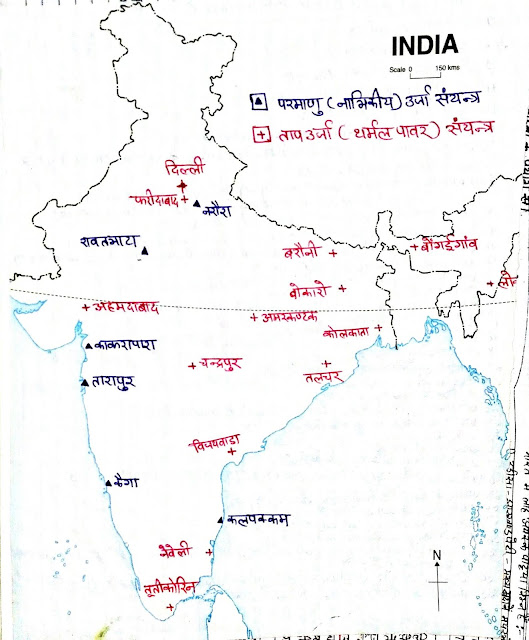 INDIA
Scale 0 150 kms
परमाणु (नाभिकीय) उर्जा संयन्त्र
ताप उर्जा (थर्मल पावर) संयन्त्र
दिल्ली
फरीदाबाद
नरौरा
रावतभाटा
बरौनी
बोंगईगांव
बोकारो
अहमदाबाद
अमरकण्टक
कोलकाता
काकरापारा
चन्द्रपुर
तलचर
तारापुर
विजयवाडा
कैगा
कलपक्कम
नेवेली
तुतीकोरिन
N